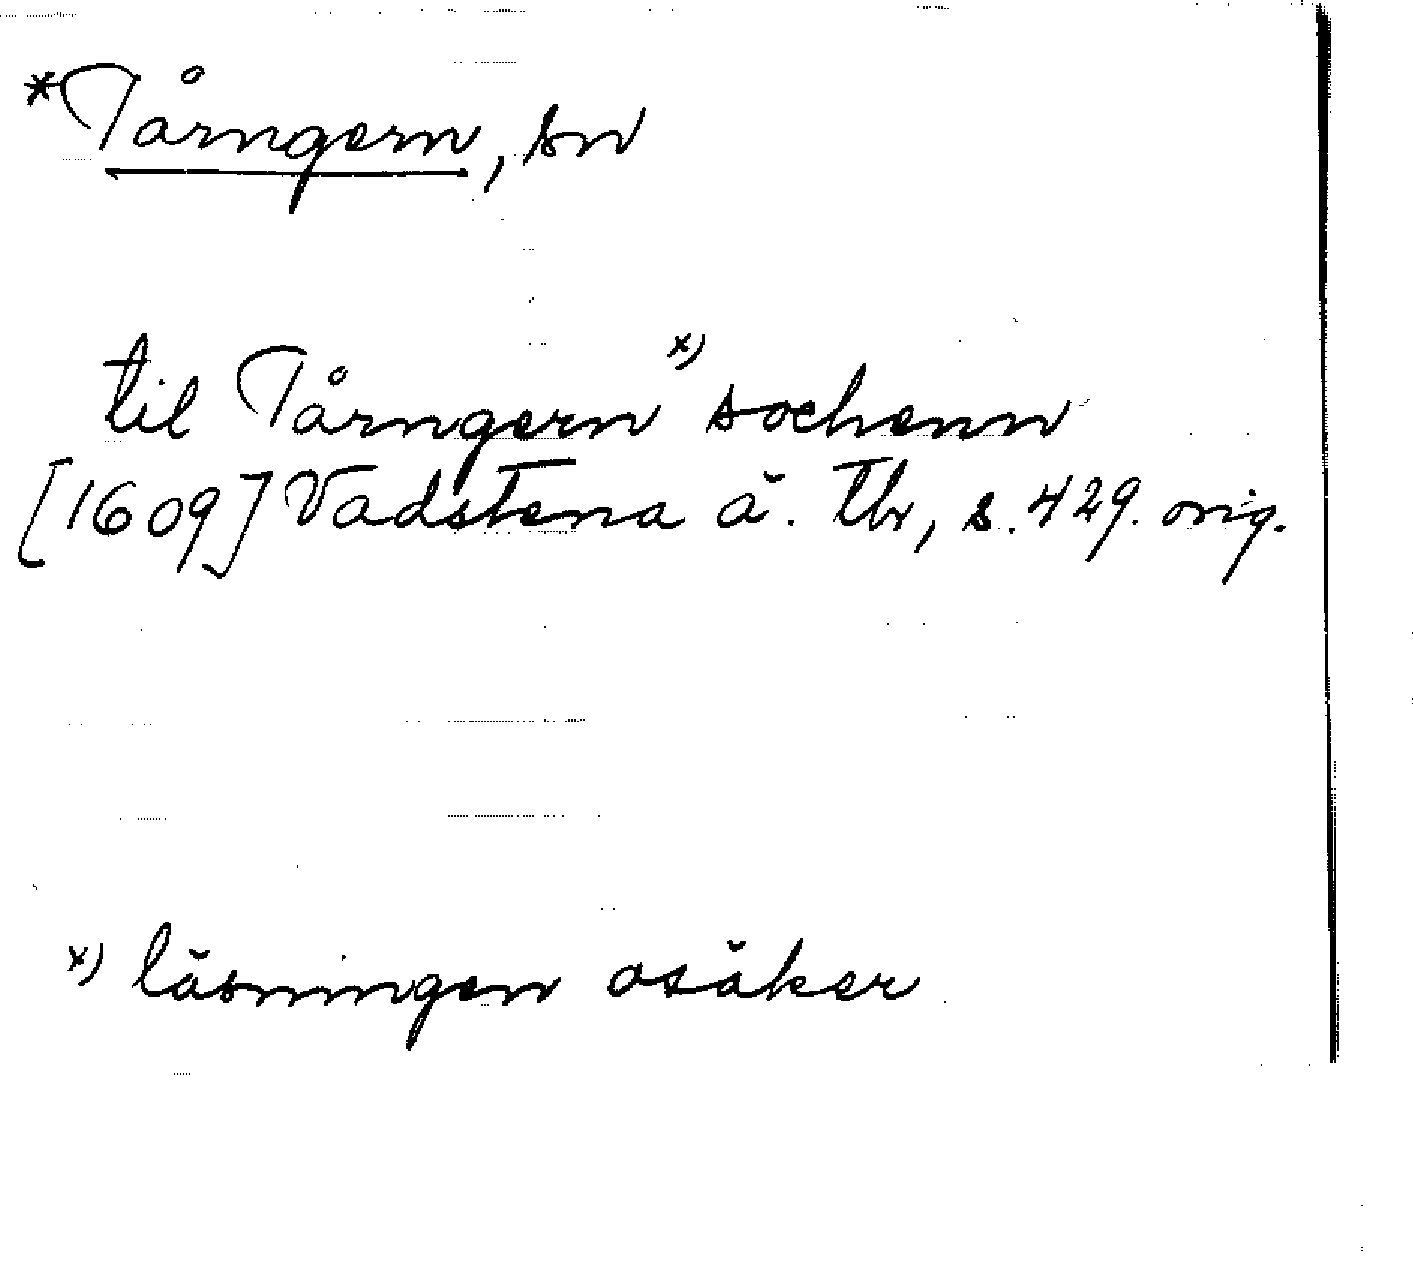 *Tårngern, sn
til Tårngern x) sochenn
[1609] Vadstena ä. Tb, s. 429. orig.
x) läsningen osäker